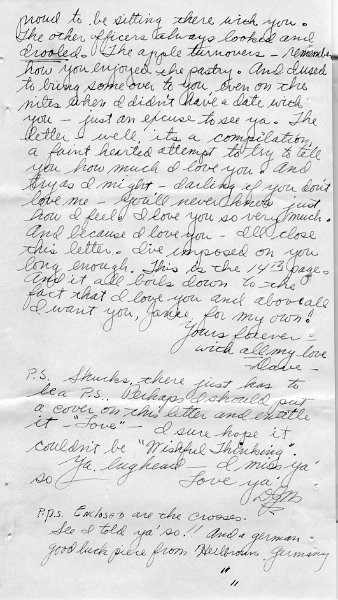 proud to be sitting there with you.
The other officers always looked and
drooled. The apple turnovers - remember
how you enjoyed the pastry. And I used
to bring some over to you, even on the
nites when I didn't have a date with
you - just an excuse to see ya. The
letter - well, its a compilation,
a faint hearted attempt to try to tell
you how much I love you. And
try as I might - darling if you don't
love me - you'll never know just
how I feel. I love you so very much.
And because I love you - I'll close
this letter. I've imposed on you
long enough. This is the 14th page
and it all boils down to the
fact that I love you and above all
I want you, for my own!
Yours forever -
with all my love
- Dave -
P.S. Shucks, there just has to
be a P.S. Perhaps I should put
a cover on this letter and entitle
it - "Love" - I sure hope it
couldn't be "Wishful Thinking".
Ya lughead - I miss ya'
so - Love ya'
P.p.s. Enclosed are the crosses.
See I told ya' so!! And a german
good luck piece from Heilbronn, Germany
" "